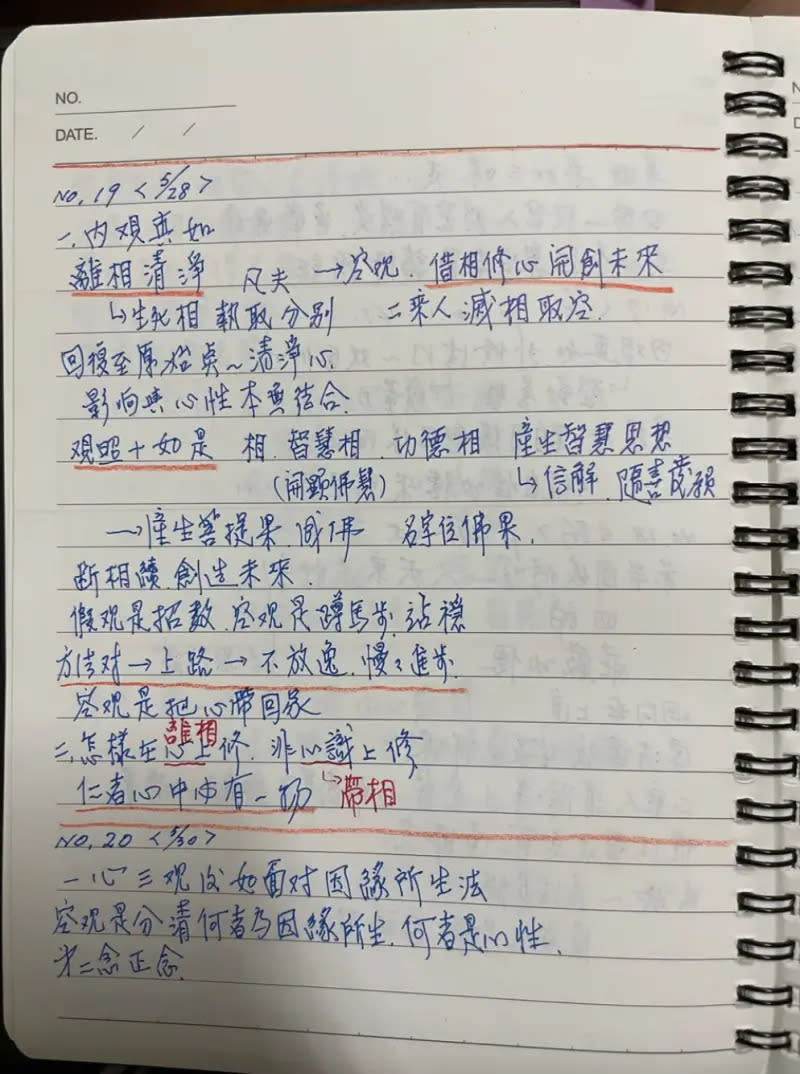 NO.
DATE. / /
No, 19 <5/28>
一、內观真如
離相清淨 凡夫 →空观. 借相修心開創未來
↳生死相 執取分別 二乘人滅相取空.
回復至原始点~清淨心.
影响與心性本無結合.
观照+如是 相.智慧相.功德相 產生智慧思想
(開顯佛慧) ↳信解.隨喜.發願
→產生菩提果.成佛 名字位佛果.
断相續.創造未來.
假观是招數.空观是蹲馬步.站穩
方法对→上路→不放逸.慢々進步.
空观是把心帶回家
離相
二、怎樣在心上修.非心識上修,
仁者心中沒有一物 ↳帶相
No, 20 <5/30>
一心三观 面对因緣所生法
空观是分清何者为因緣所生.何者是心性.
才二念正念.